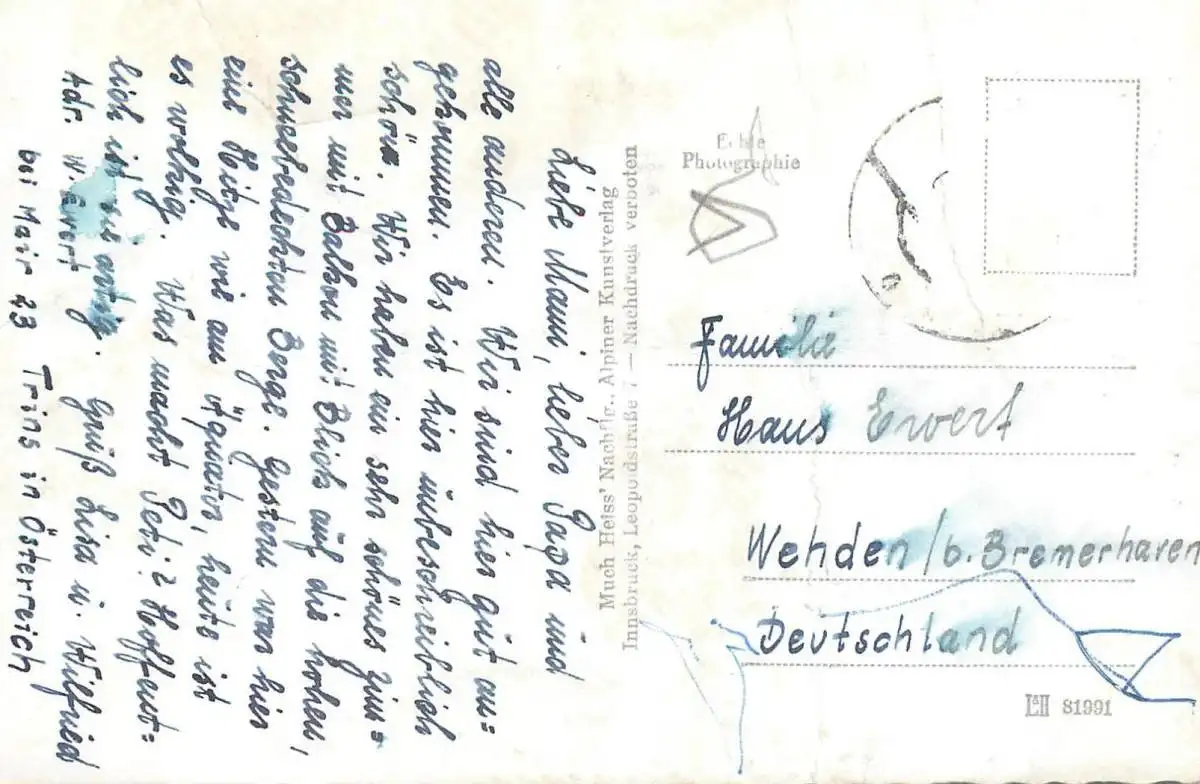 Liebe Mami, lieber Papa und
alle anderen. Wir sind hier gut an=
gekommen. Es ist hier unbeschreiblich
schön. Wir haben ein sehr schönes Zim=
mer mit Balkon mit Blick auf die hohen,
schneebedeckten Berge. Gestern war hier
eine Hitze wie am Äquator, heute ist
es wolkig. Was macht Peti? Hoffent=
lich ist sie artig. Gruß Lisa u. Wilfried
Adr. W. Ewert
bei Mair 23 Trins in Österreich
Much Heiss' Nachflg., Alpiner Kunstverlag
Innsbruck, Leopoldstraße 7 — Nachdruck verboten
Echte
Photographie
Familie
Hans Ewert
Wehden / b. Bremerhaven
Deutschland
81991